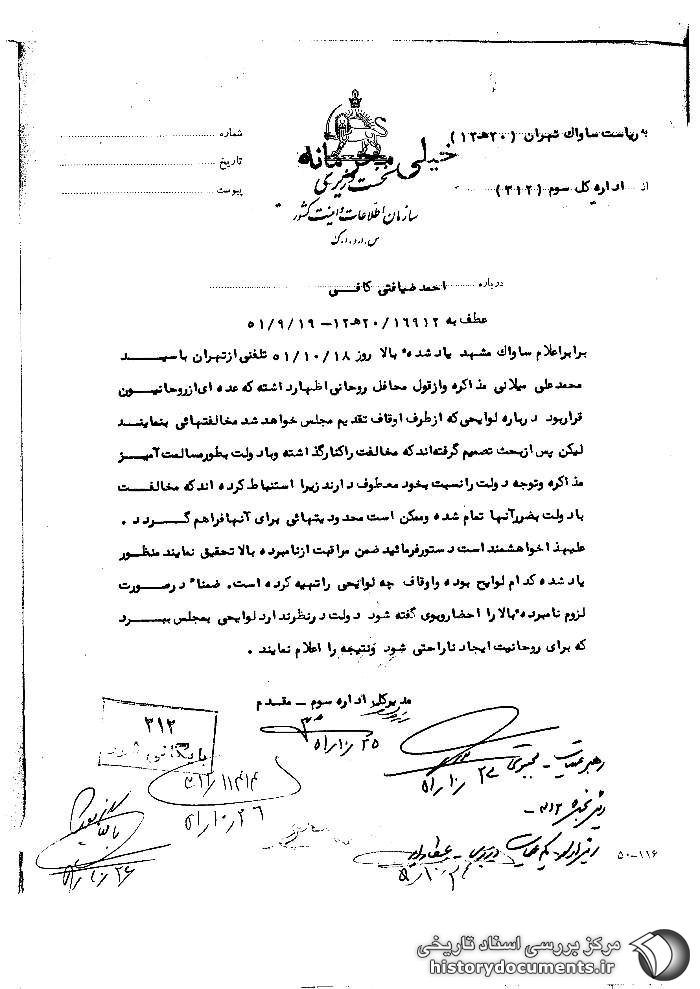 به ریاست ساواك تهران (۲۰هـ۱۲)
شماره
خیلی محرمانه
تاریخ
نخست وزیری
از اداره کل سوم (۳۱۲)
پیوست
سازمان اطلاعات و امنیت کشور
س.ا.و.ا.ک
درباره احمد ضیافتی کافی
عطف به ۱۶۹۱۲/۲۰هـ۱۲ – ۵۱/۹/۱۹
برابر اعلام ساواك مشهد یاد شده بالا روز ۵۱/۱۰/۱۸ تلفنی از تهران با سید
محمد علی میلانی مذاکره و از قول محافل روحانی اظهار داشته که عده ای از روحانیون
قرار بود درباره لوایحی که از طرف اوقاف تقدیم مجلس خواهد شد مخالفتهائی بنمایند
لیکن پس از بحث تصمیم گرفته اند که مخالفت را کنار گذاشته و با دولت بطور مسالمت آمیز
مذاکره و توجه دولت را نسبت بخود معطوف دارند زیرا استنباط کرده اند که مخالفت
با دولت بضرر آنها تمام شده و ممکن است محدودیتهائی برای آنها فراهم گردد .
علیهذا خواهشمند است دستور فرمائید ضمن مراقبت از نامبرده بالا تحقیق نمایند منظور
یاد شده کدام لوایح بوده و اوقاف چه لوایحی را تهیه کرده است. ضمناً در صورت
لزوم نامبرده بالا را احضار و بوی گفته شود دولت در نظر ندارد لوایحی بمجلس ببرد
که برای روحانیت ایجاد ناراحتی شود و نتیجه را اعلام نمایند .
مدیرکل اداره سوم – مقدم
۳۱۲
۵۱/۱۰/۲۵
بایگانی شد
رهبر عملیات – محبوبی
۵۱/۱۰/۲۴
۳۱۲/۱۱۴۱۴
۵۱/۱۰/۲۶
رئیس بخش ۳۱۲ –
بایگانی شود
۵۰–۱۱۶
۵۱/۱۰/۲۶
مرکز بررسی اسناد تاریخی
historydocuments.ir